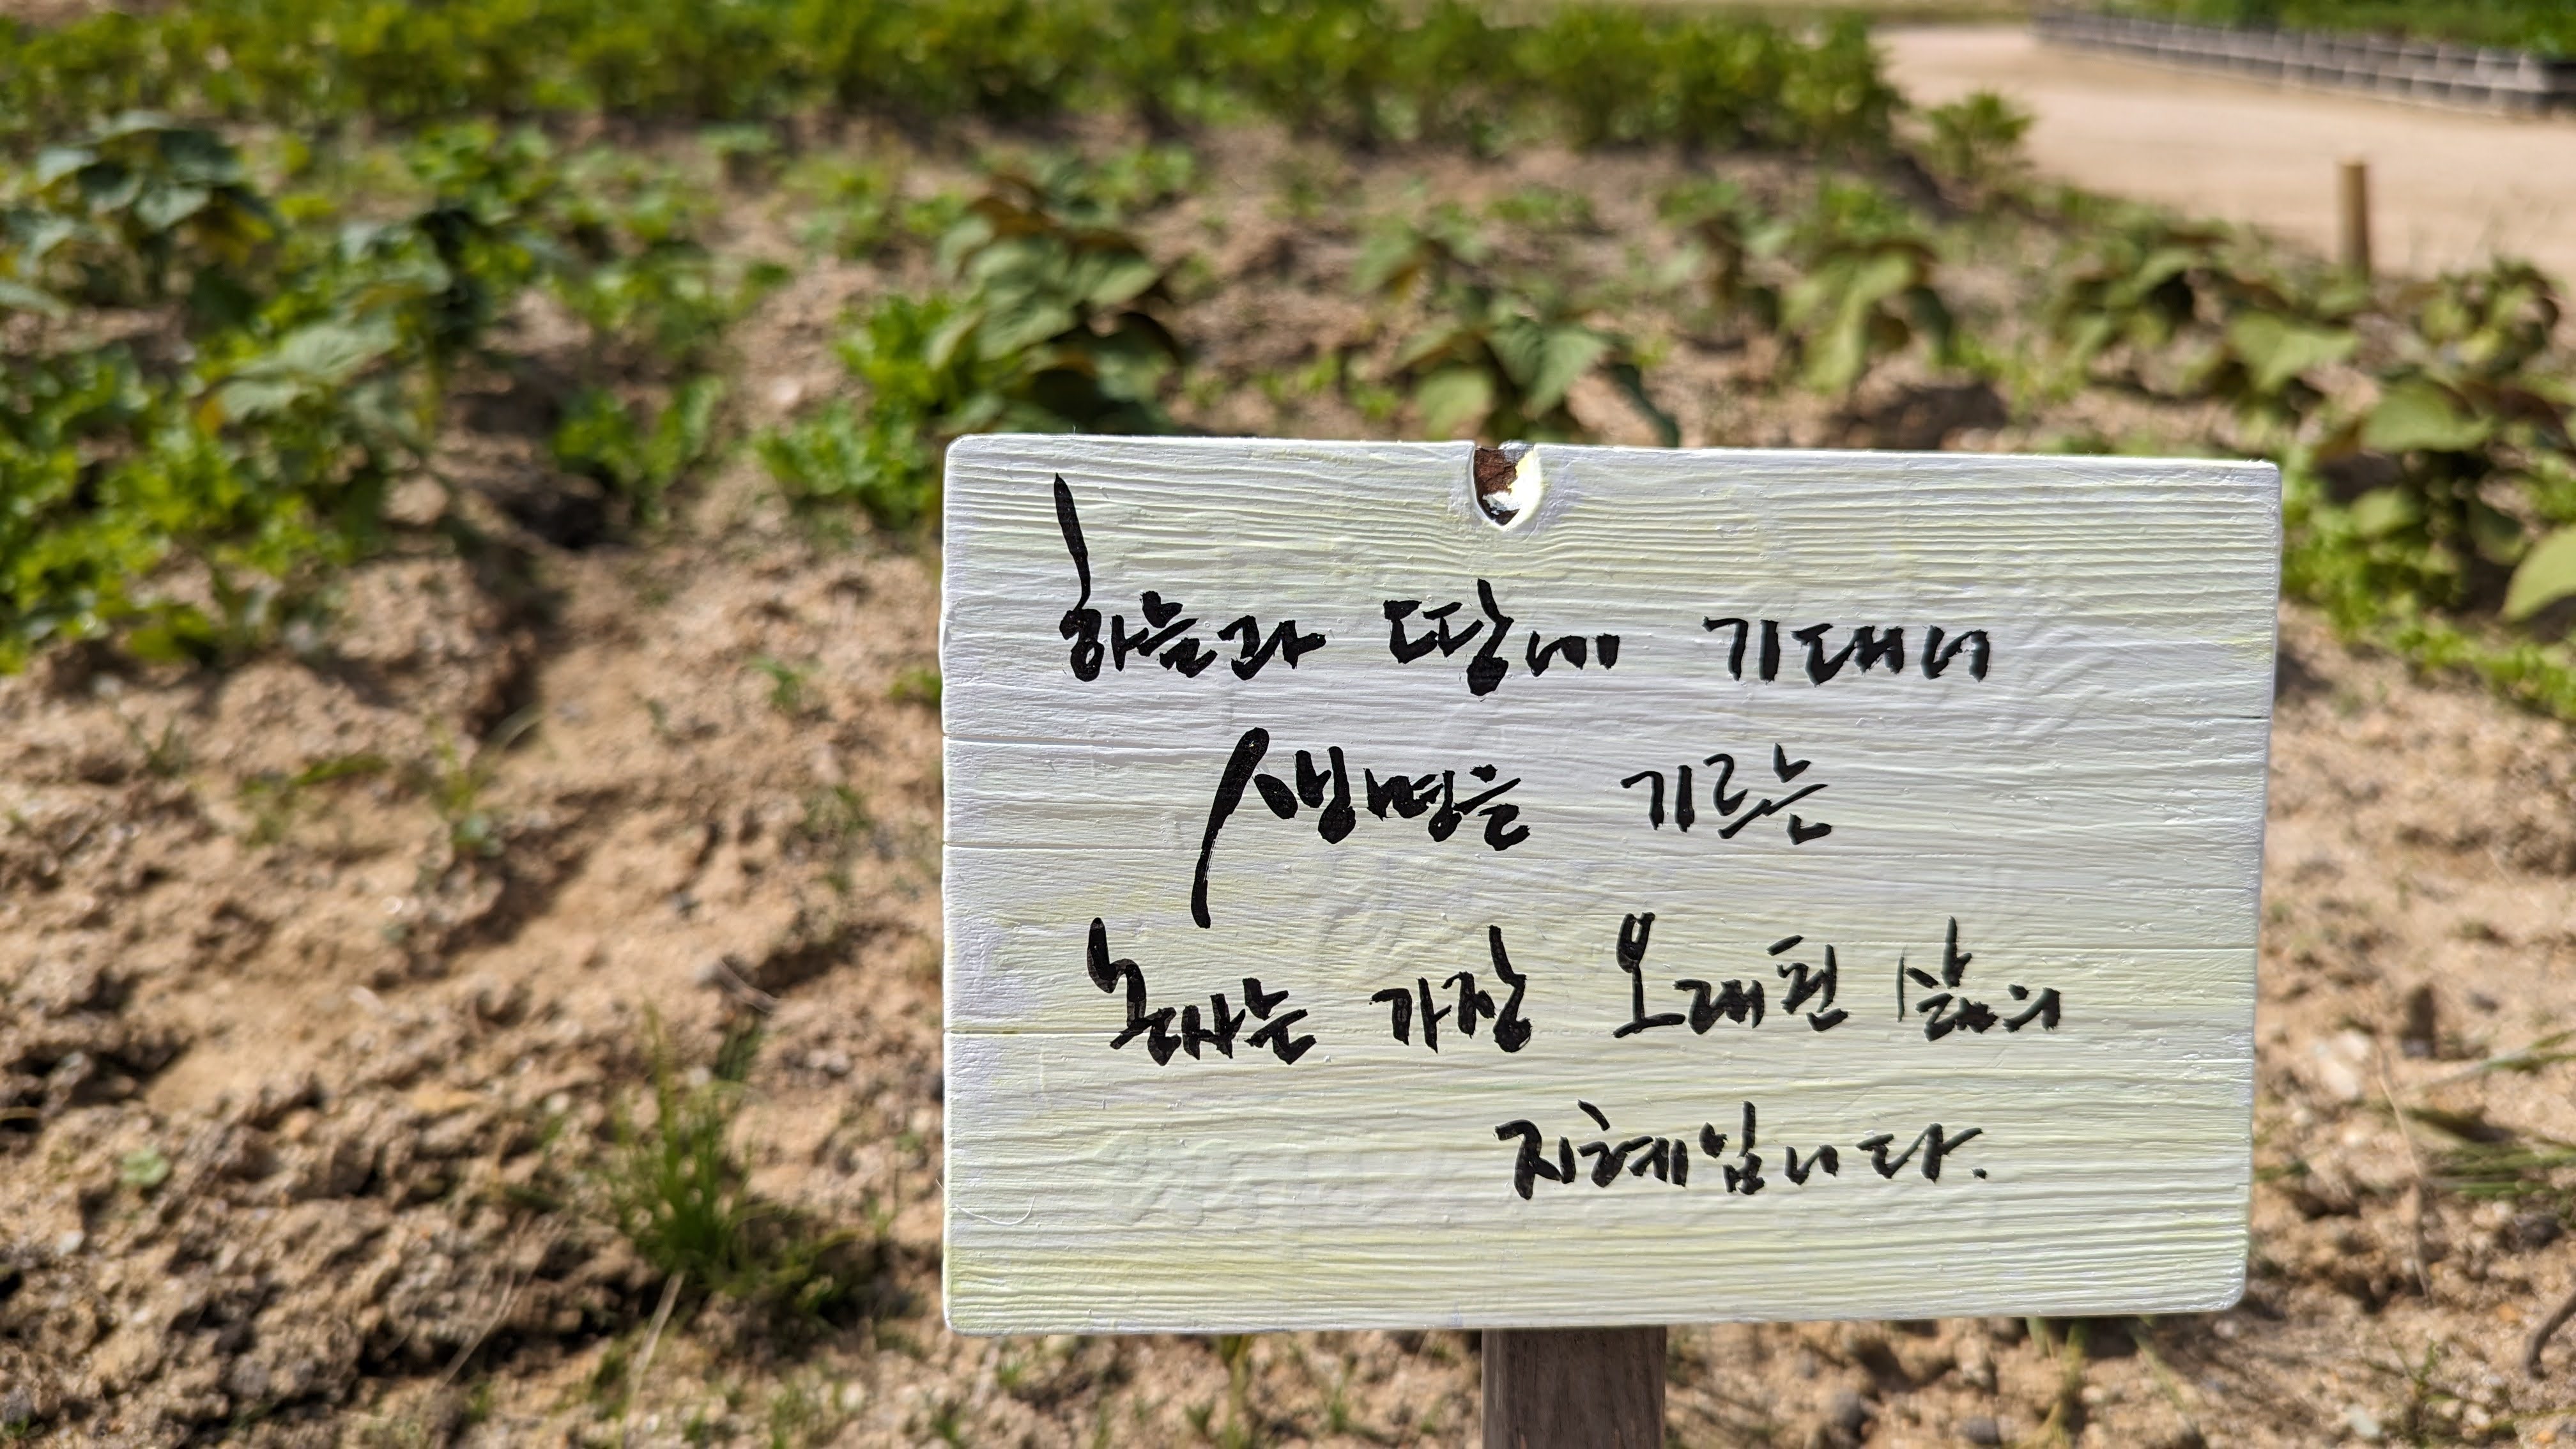 하늘과 땅에 기대어
생명을 기르는
농사는 가장 오래된 삶의
지혜입니다.